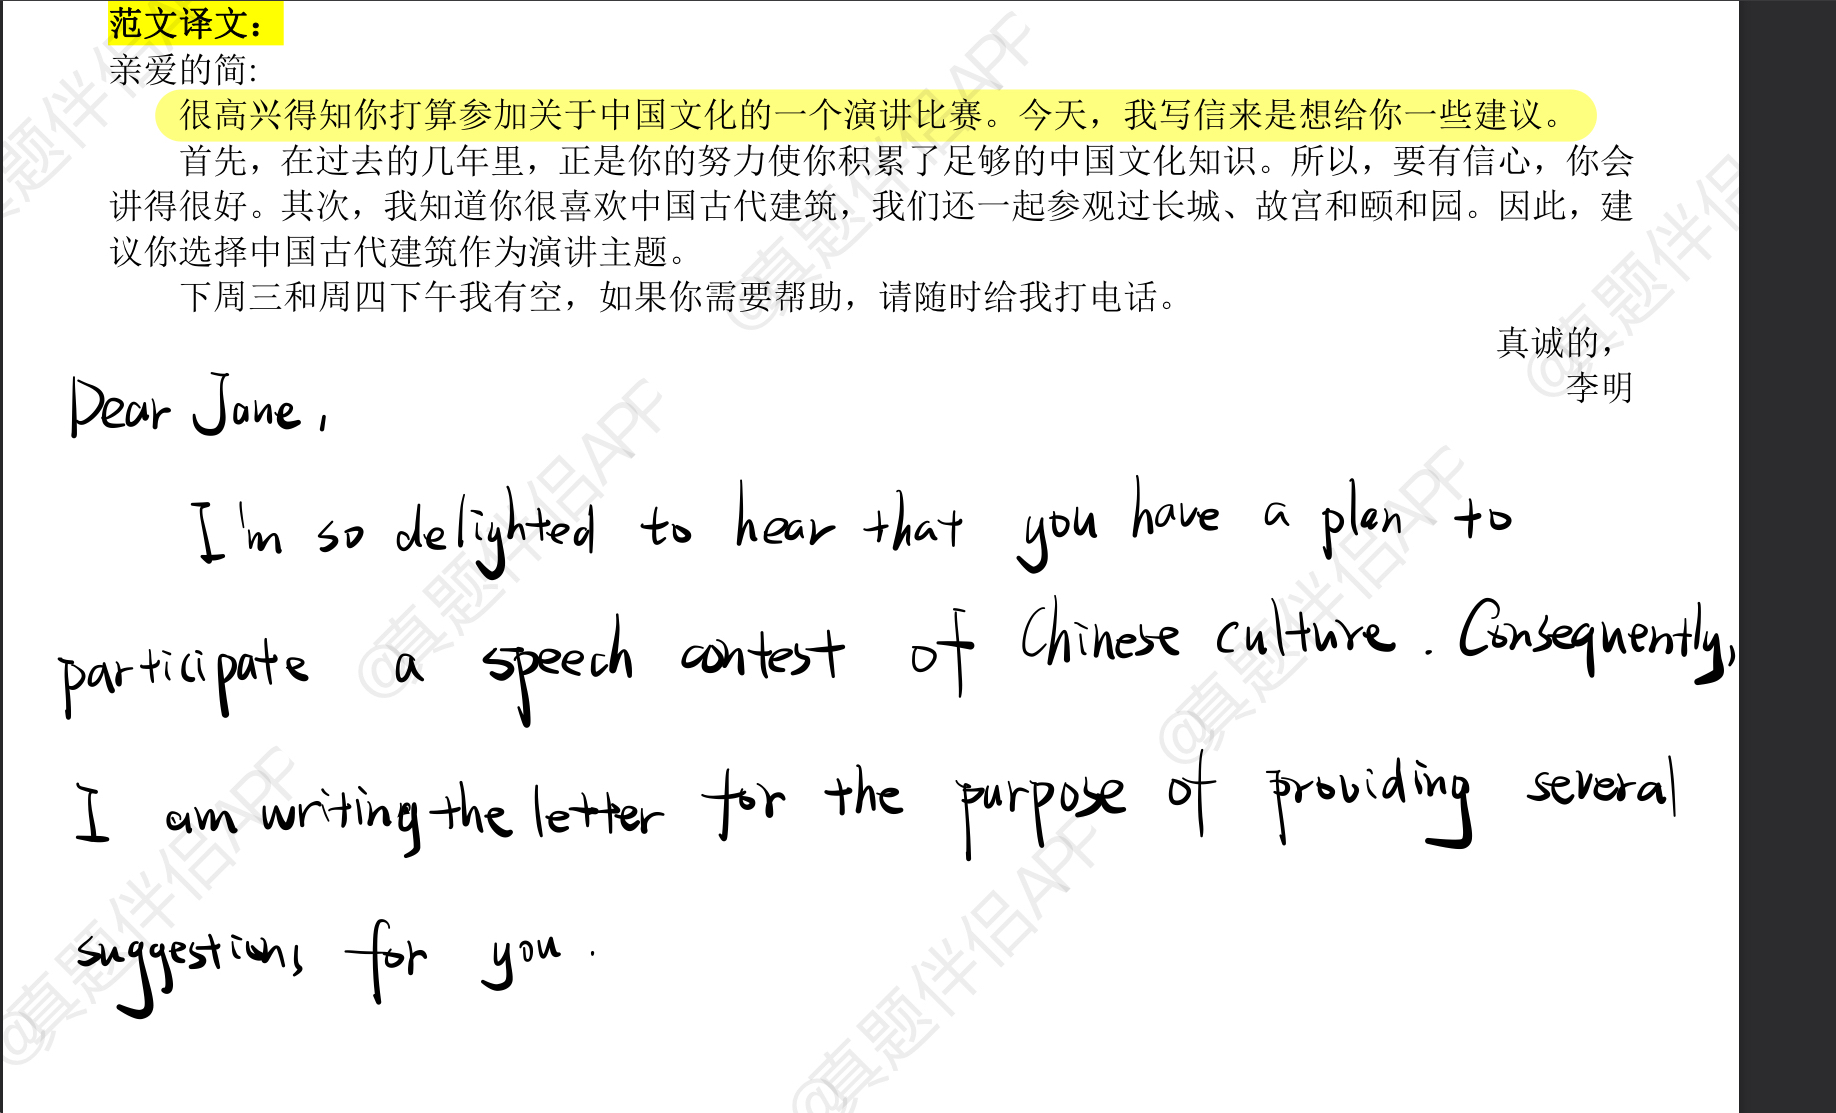 范文译文：
亲爱的简:
很高兴得知你打算参加关于中国文化的一个演讲比赛。今天，我写信来是想给你一些建议。
首先，在过去的几年里，正是你的努力使你积累了足够的中国文化知识。所以，要有信心，你会
讲得很好。其次，我知道你很喜欢中国古代建筑，我们还一起参观过长城、故宫和颐和园。因此，建
议你选择中国古代建筑作为演讲主题。
下周三和周四下午我有空，如果你需要帮助，请随时给我打电话。
真诚的，
李明
Dear Jane,
I'm so delighted to hear that you have a plan to
participate a speech contest of Chinese culture. Consequently,
I am writing the letter for the purpose of providing several
suggestions for you.
@真题伴侣APF
@真题伴侣APF
@真题伴侣
@真题伴侣APF
@真题伴侣APF
@真题伴侣APF
@真题伴侣APF